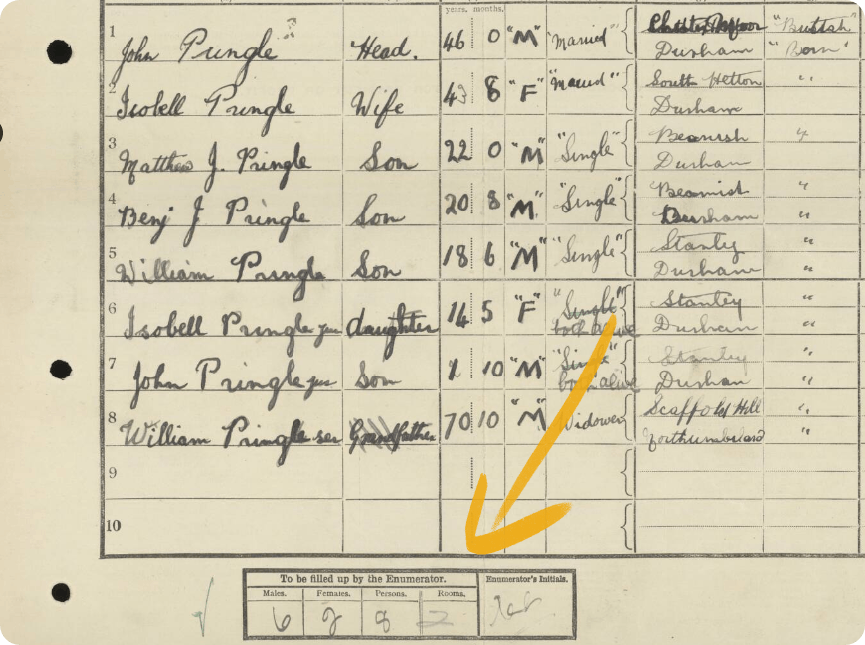 years. months.
1 John Pringle Head. 46 0 "M" "Married" "British"
Durham "Born"
2 Isobell Pringle Wife 43 8 "F" "Married" South Hetton "
Durham
3 Matthew J. Pringle Son 22 0 "M" "Single" Beamish "
Durham
4 Benj J Pringle Son 20 8 "M" "Single" Beamish "
Durham
5 William Pringle Son 18 6 "M" "Single" Stanley "
Durham
6 Isobell Pringle jun daughter 14 5 "F" "Single" Stanley "
both alive Durham "
7 John Pringle jun Son 10 "M" "Single" Stanley "
both alive Durham "
8 William Pringle sen Grandfather 70 10 "M" Widower Scaffold Hill "
Northumberland "
9
10
To be filled up by the Enumerator. Enumerator's Initials.
Males. Females. Persons. Rooms.
6 2 8 2